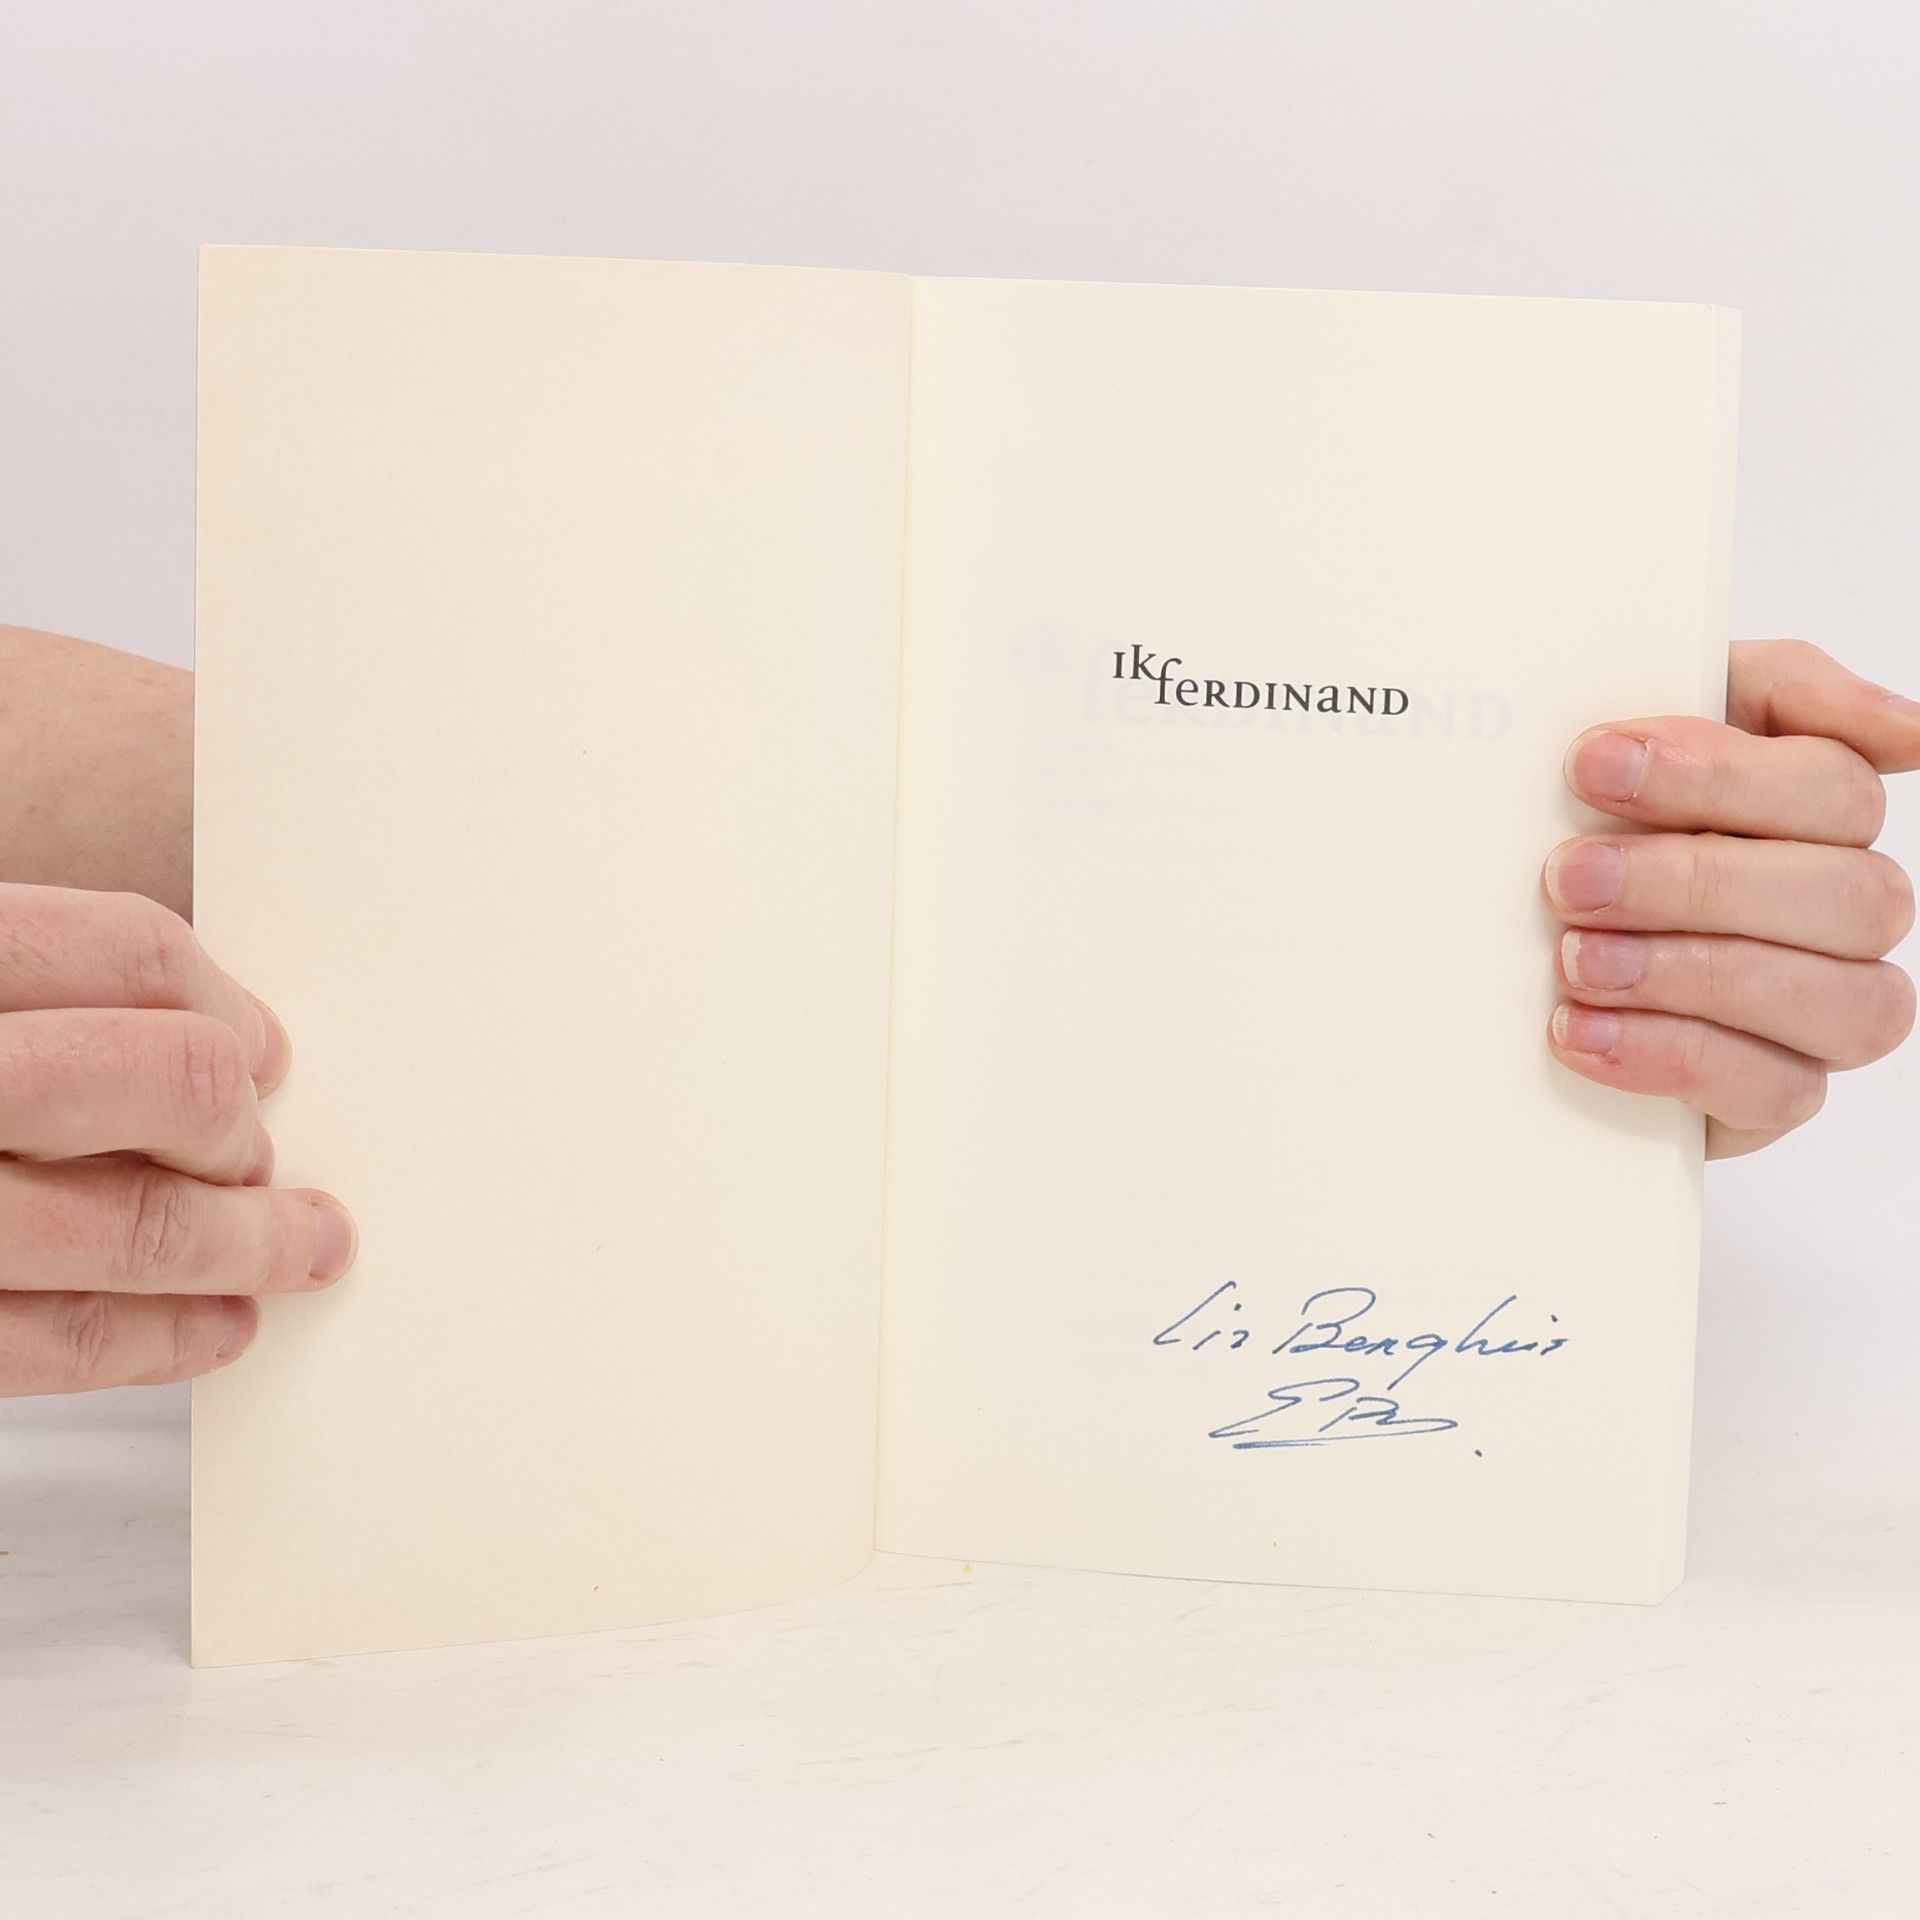 ık
feRDINaND
Liz Berghuis